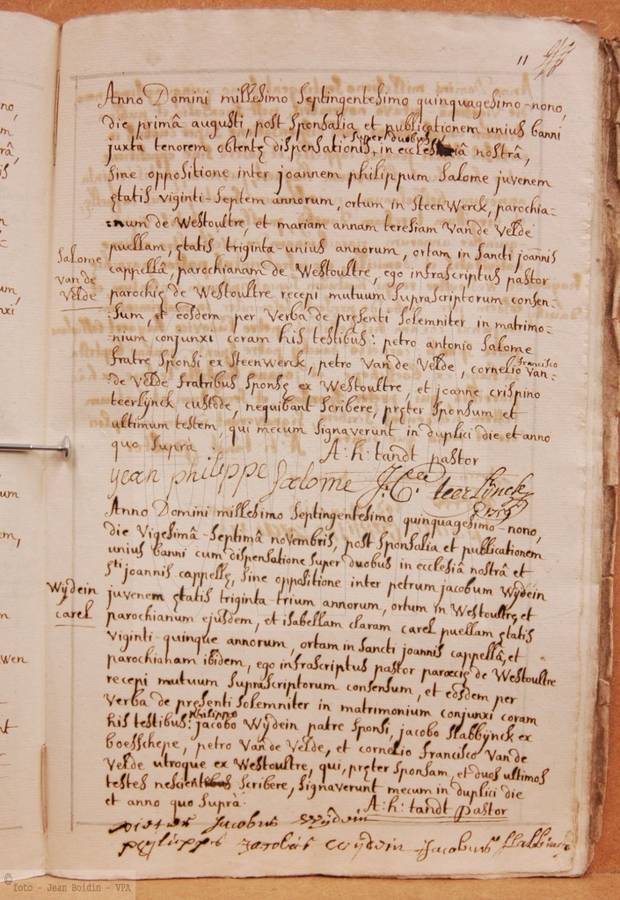 11
Anno Domini millesimo septingentesimo quinquagesimo-nono,
die primâ augusti, post sponsalia et publicationem unius banni
juxta tenorem obtentę dispensationis, super duobus, in ecclesiâ nostrâ,
sine oppositione inter joannem philippum Salome juvenem
ętatis viginti-septem annorum, ortum in SteenWerck, parochia=
=num de Westoultre, et mariam annam teresiam Van de Velde
puellam, ętatis triginta-unius annorum, ortam in Sancti joannis
Salome
van de
Velde
cappellâ, parochianam de Westoultre, ego infrascriptus pastor
parochię de Westoultre recepi mutuum suprascriptorum consen=
=sum, et eosdem per Verba de pręsenti solemniter in matrimo=
=nium conjunxi coram his testibus: petro antonio Salome
fratre sponsi ex SteenWerck, petro Van de Velde, cornelio francisco Van=
=de Velde fratribus sponsę ex Westoultre, et joanne crispino
teerlynck custode, nequibant scribere, pręter sponsum et
ultimum testem, qui mecum signaverunt in duplici die et anno
quo supra
A: h: tandt pastor
jean philippe Salome
J: C: teerlynck
Anno Domini millesimo septingentesimo quinquagesimo-nono,
die Vigesimâ-septimâ novembris, post sponsalia et publicationem
unius banni cum dispensatione super duobus in ecclesiâ nostrâ et
sti joannis cappellę, sine oppositione inter petrum jacobum Wÿdein
Wÿdein
carel
juvenem ętatis triginta-trium annorum, ortum in Westoultre, et
parochianum ejusdem, et isabellam claram carel puellam ętatis
viginti-quinque annorum, ortam in sancti joannis cappellâ, et
parochianam ibidem, ego infrascriptus pastor parocię de Westoultre
recepi mutuum suprascriptorum consensum, et eosdem per
Verba de pręsenti solemniter in matrimonium conjunxi coram
his testibus: philippo jacobo Wÿdein patre sponsi, jacobo slabbynck ex
boesschepe, petro Van de Velde, et cornelio francisco Van de
Velde utroque ex Westoultre, qui, pręter sponsam, et duos ultimos
testes scribere, signaverunt mecum in duplici die
et anno quo supra
A: h: tandt pastor
pieter Jacobus Wÿdein
Jacobus Wÿdein Jacobus
© foto - Jean Boidin - VPA